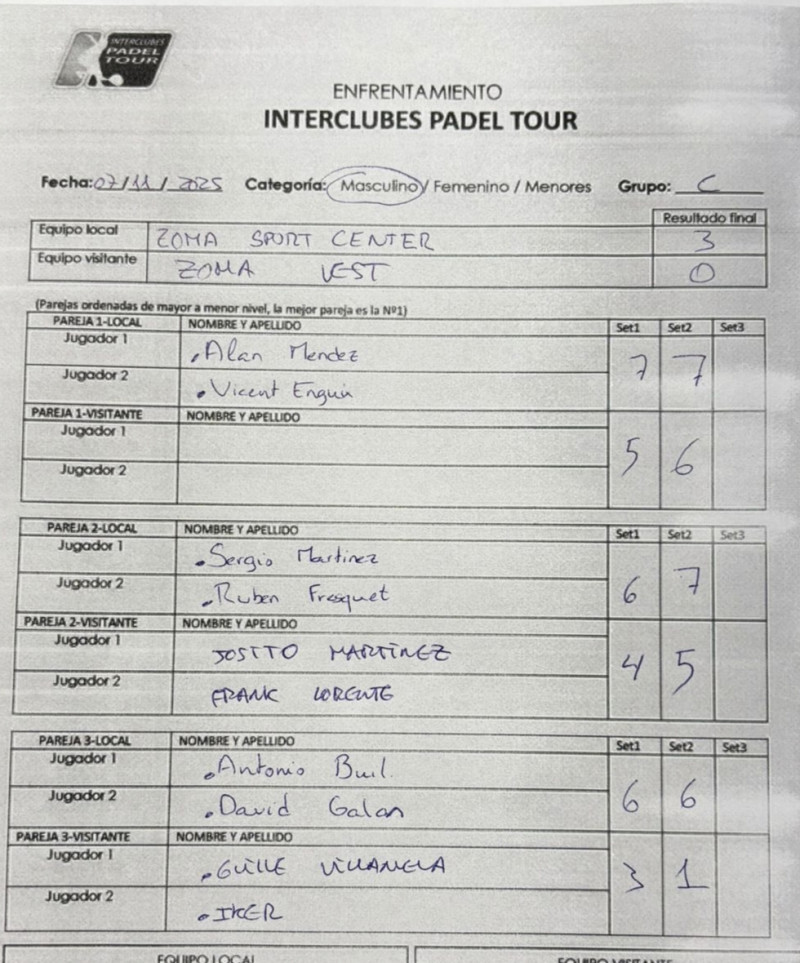 INTERCLUBES
PADEL
TOUR
ENFRENTAMIENTO
INTERCLUBES PADEL TOUR
Fecha: 07/11/2025 Categoría: Masculino / Femenino / Menores Grupo: C
Resultado final
Equipo local ZOMA SPORT CENTER 3
Equipo visitante ZOMA VEST 0
(Parejas ordenadas de mayor a menor nivel, la mejor pareja es la Nº1)
PAREJA 1-LOCAL NOMBRE Y APELLIDO Set1 Set2 Set3
Jugador 1 Alan Mendez 7 7
Jugador 2 Vicent
PAREJA 1-VISITANTE NOMBRE Y APELLIDO
Jugador 1 5 6
Jugador 2
PAREJA 2-LOCAL NOMBRE Y APELLIDO Set1 Set2 Set3
Jugador 1 Sergio Martinez 6 7
Jugador 2 Ruben Fresquet
PAREJA 2-VISITANTE NOMBRE Y APELLIDO
Jugador 1 JOSITO MARTÍNEZ 4 5
Jugador 2 FRANK LORENTE
PAREJA 3-LOCAL NOMBRE Y APELLIDO Set1 Set2 Set3
Jugador 1 Antonio Buil
Jugador 2 David Galan 6 6
PAREJA 3-VISITANTE NOMBRE Y APELLIDO
Jugador 1 GUILLE 3 1
Jugador 2 IKER
EQUIPO LOCAL EQUIPO VISITANTE